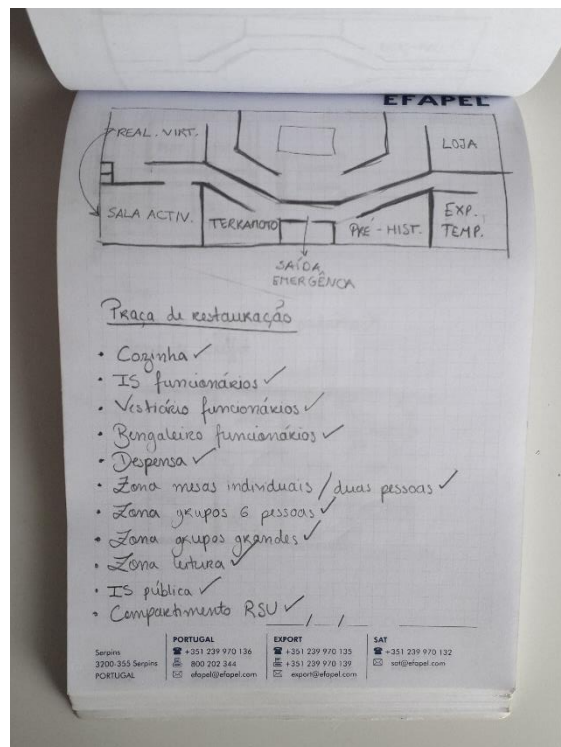 EFAPEL
REAL. VIRT.
LOJA
SALA ACTIV.
TERRAMOTO
PRÉ-HIST.
EXP.
TEMP.
SAÍDA
EMERGÊNCIA
Praça de restauração
• Cozinha ✓
• IS funcionários ✓
• Vestiário funcionários ✓
• Bengaleiro funcionários ✓
• Despensa ✓
• Zona mesas individuais / duas pessoas ✓
• Zona grupos 6 pessoas ✓
• Zona grupos grandes ✓
• Zona leitura ✓
• IS pública ✓
• Compartimento RSU ✓
___/___/___
Serpins
3200-355 Serpins
PORTUGAL
PORTUGAL
☎ +351 239 970 136
800 202 344
✉ efapel@efapel.com
EXPORT
☎ +351 239 970 135
+351 239 970 139
✉ export@efapel.com
SAT
☎ +351 239 970 132
✉ sat@efapel.com